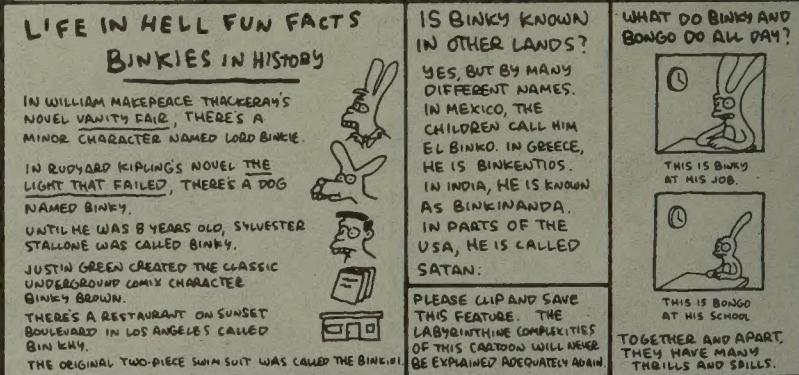 LIFE IN HELL FUN FACTS
BINKIES IN HISTORY
IN WILLIAM MAKEPEACE THACKERAY'S
NOVEL VANITY FAIR, THERE'S A
MINOR CHARACTER NAMED LORD BINKIE.
IN RUDYARD KIPLING'S NOVEL THE
LIGHT THAT FAILED, THERE'S A DOG
NAMED BINKY.
UNTIL HE WAS 8 YEARS OLD, SYLVESTER
STALLONE WAS CALLED BINKY.
JUSTIN GREEN CREATED THE CLASSIC
UNDERGROUND COMIX CHARACTER
BINKY BROWN.
THERE'S A RESTAURANT ON SUNSET
BOULEVARD IN LOS ANGELES CALLED
BIN KHY.
THE ORIGINAL TWO-PIECE SWIM SUIT WAS CALLED THE BINKINI.
IS BINKY KNOWN
IN OTHER LANDS?
YES, BUT BY MANY
DIFFERENT NAMES.
IN MEXICO, THE
CHILDREN CALL HIM
EL BINKO. IN GREECE,
HE IS BINKENTIOS.
IN INDIA, HE IS KNOWN
AS BINKINANDA.
IN PARTS OF THE
USA, HE IS CALLED
SATAN.
PLEASE CLIP AND SAVE
THIS FEATURE. THE
LABYRINTHINE COMPLEXITIES
OF THIS CARTOON WILL NEVER
BE EXPLAINED ADEQUATELY AGAIN.
WHAT DO BINKY AND
BONGO DO ALL DAY?
THIS IS BINKY
AT HIS JOB.
THIS IS BONGO
AT HIS SCHOOL
TOGETHER AND APART,
THEY HAVE MANY
THRILLS AND SPILLS.